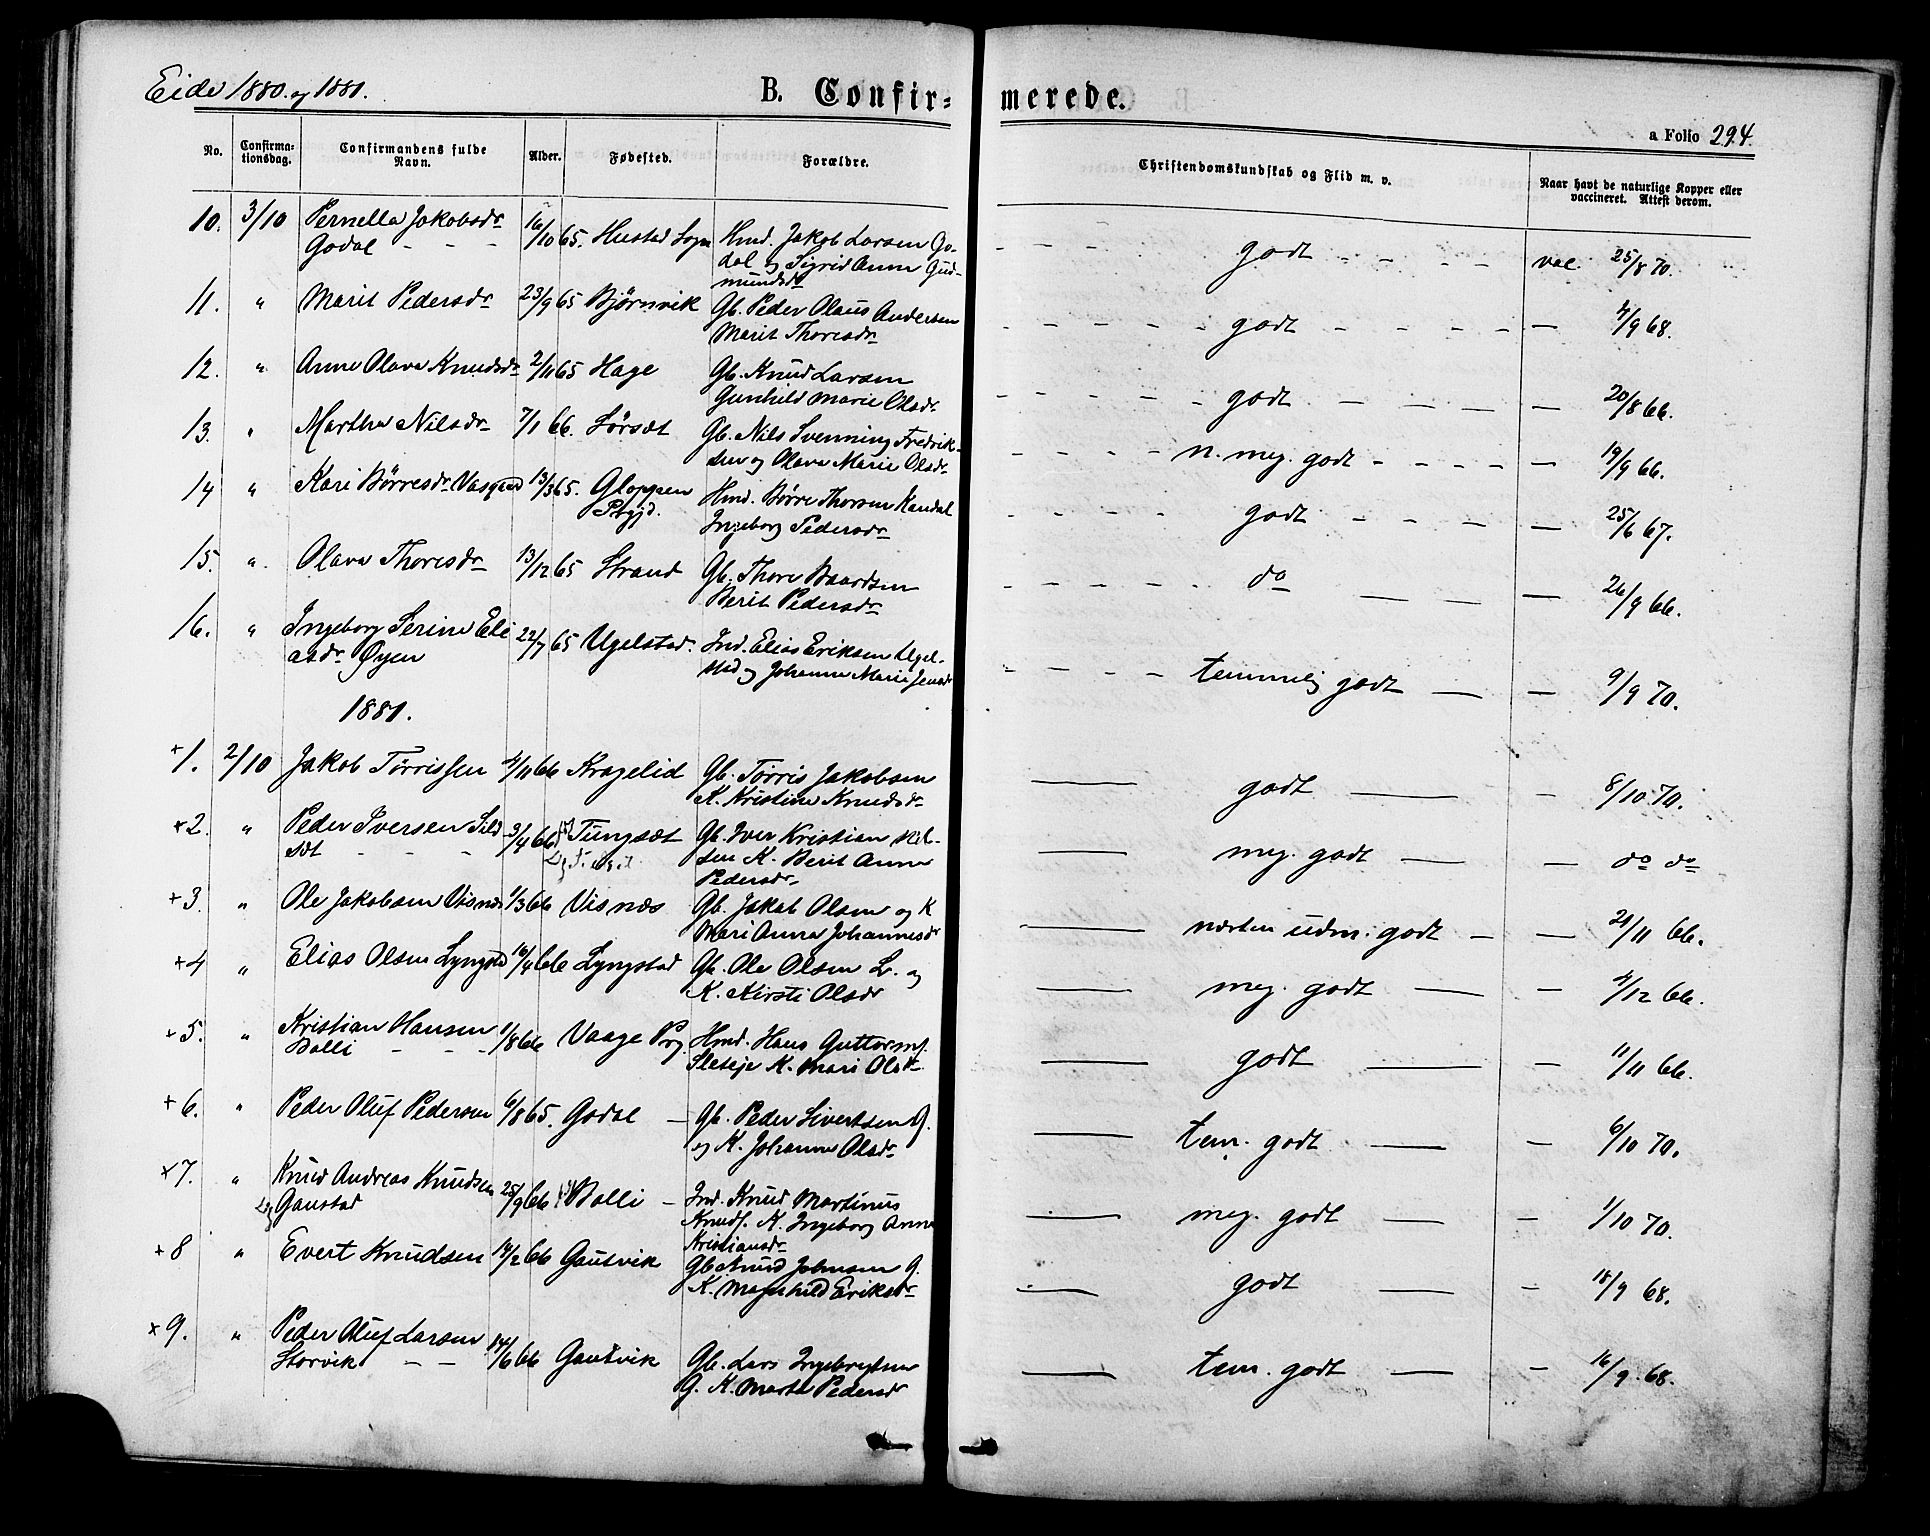 Eide 1880 og 1881.
B. Confirmerede.
a Folio 294.
No. Confirmationsdag. Confirmandens fulde Navn. Alder. Fødested. Forældre. Christendomskundskab og Flid m. v. Naar havt de naturlige Kopper eller vaccineret. Attest derom.
10. 3/10 Pernella Jakobsdr 16/10 65. Hustad Sogn Hmd. Jakob Larsen Go- godt vac. 25/8 70.
Godal - - - dal og Sigrid Anna Gud-
mundsdr
11. " Marit Pedersdr 23/9 65 Bjørnvik Gb. Peder Olaus Andersen godt — 4/9 68.
Marit Thoresdr
12. " Anne Olava Knudsdr 2/11 65 Hage Gb. Knud Larsen godt — 20/8 66.
Gunhild Marie Olsdr
13. " Martha Nilsdr 7/1 66. Sørsæt Gb. Nils Svenning Fredrik- n. meg. godt — 19/9 66.
sen og Olava Marie Olsdr
14 " Kari Børresdr Vasgaard 13/3 65. Gloppen Hmd. Børre Thorsen Kandal godt — 25/6 67.
Prgjd. Ingeborg Pedersdr
15. " Olava Thoresdr 13/12 65 Strand Gb. Thore Baardsen do — 26/9 66.
Berit Pedersdr
16. " Ingeborg Serine Eli 22/7 65 Ugelstad. Ind. Elias Eriksen Ugel- temmelig godt — 9/9 70.
asdr Øyen stad og Johanna Marie Jensdr
1881.
+1. 2/10 Jakob Tørrissen 4/11 66 Kragelid Gb. Tørris Jakobsen godt — 8/10 70.
K. Kristine Knudsdr
+2. " Peder Iversen Sild 3/4 66 Tungsæt Gb. Iver Kristian Nil- meg. godt — do do
sæt - - - sen K. Berit Anne
Pedersdr
+3. " Ole Jakobsen Visnæs 1/3 66 Visnæs Gb. Jakob Olsen og K næsten udm. godt — 21/11 66.
Mari Anna Johannesdr
+4 " Elias Olsen Lyngstd 16/4 66 Lyngstad Gb. Ole Olsen L. og meg. godt — 4/12 66.
K. Kirsti Olsdr
+5. " Kristian Hansen 1/8 66 Vaage Prg. Hmd. Hans Guttorms. godt — 11/11 66.
Bolli - - - K. Mari Olsdr
+6. " Peder Oluf Pedersen 6/8 65. Godal — Gb. Peder Sivertsen G. tem. godt — 6/10 70.
og K. Johanna Olsdr
+7. " Knud Andreas Knudsen 25/9 66 Bolli — Ind. Knud Martinus meg. godt — 1/10 70.
Gaustad Knuds. K. Ingeborg Anne
Kristiansdr
+8 " Evert Knudsen 14/2 66 Gautvik Gb Knud Johnsen G. godt — 18/9 68.
K. Magnhild Eriksdr
+9. " Peder Oluf Larsen 14/6 66 Gautvik Gb. Lars Ingebrigtsen tem. godt — 16/9 68.
Storvik — — G. K. Marta Pedersdr